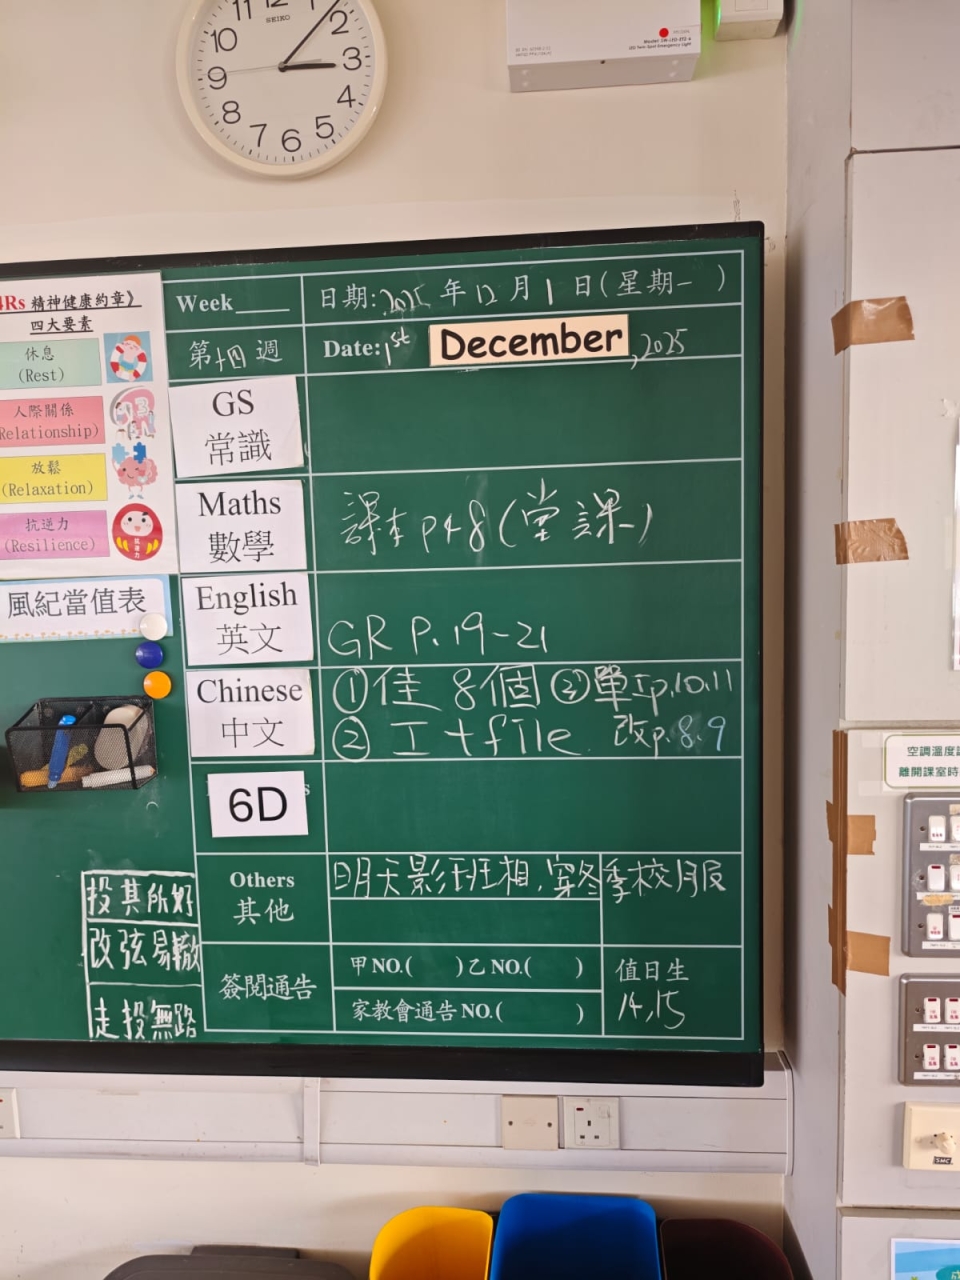 SEIKO
11 12 1
10 2
9 3
8 4
7 6 5
4Rs 精神健康約章》
四大要素
休息
(Rest)
人際關係
Relationship)
放鬆
(Relaxation)
抗逆力
(Resilience)
抗逆力
風紀當值表
Week____
日期:2025年12月1日(星期一)
第十四週
Date: 1st December, 2025
GS
常識
Maths
數學
課本p48(堂課一)
English
英文
GR P.19-21
Chinese
中文
①佳8個 ③單工p.10.11
②工+file 改p.8.9
6D
Others
其他
明天影班相,穿冬季校服
簽閱通告
甲NO.( )乙NO.( )
家教會通告NO.( )
值日生
14,15
投其所好
改弦易轍
走投無路
空調溫度
離開課室時
SMC